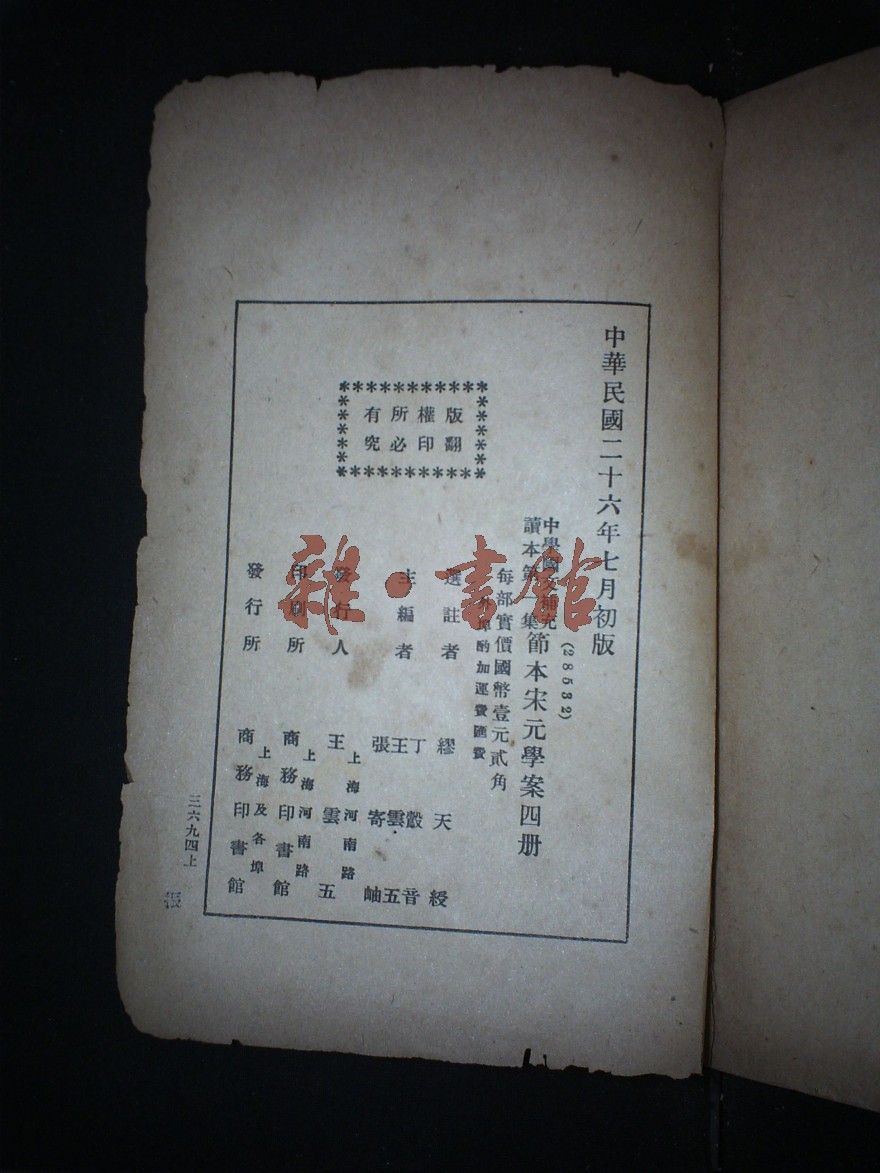 中華民國二十六年七月初版
(28532)
中學國文補充
讀本第一集
節本宋元學案四册
每部實價國幣壹元貳角
外埠酌加運費匯費
版權所有
翻印必究
選註者 繆天綬
主編者 丁𣫚音 王雲五 張寄岫
發行人 王雲五
上海河南路
印刷所 商務印書館
上海河南路
發行所 商務印書館
上海及各埠
三六九四上
張
雜·書館